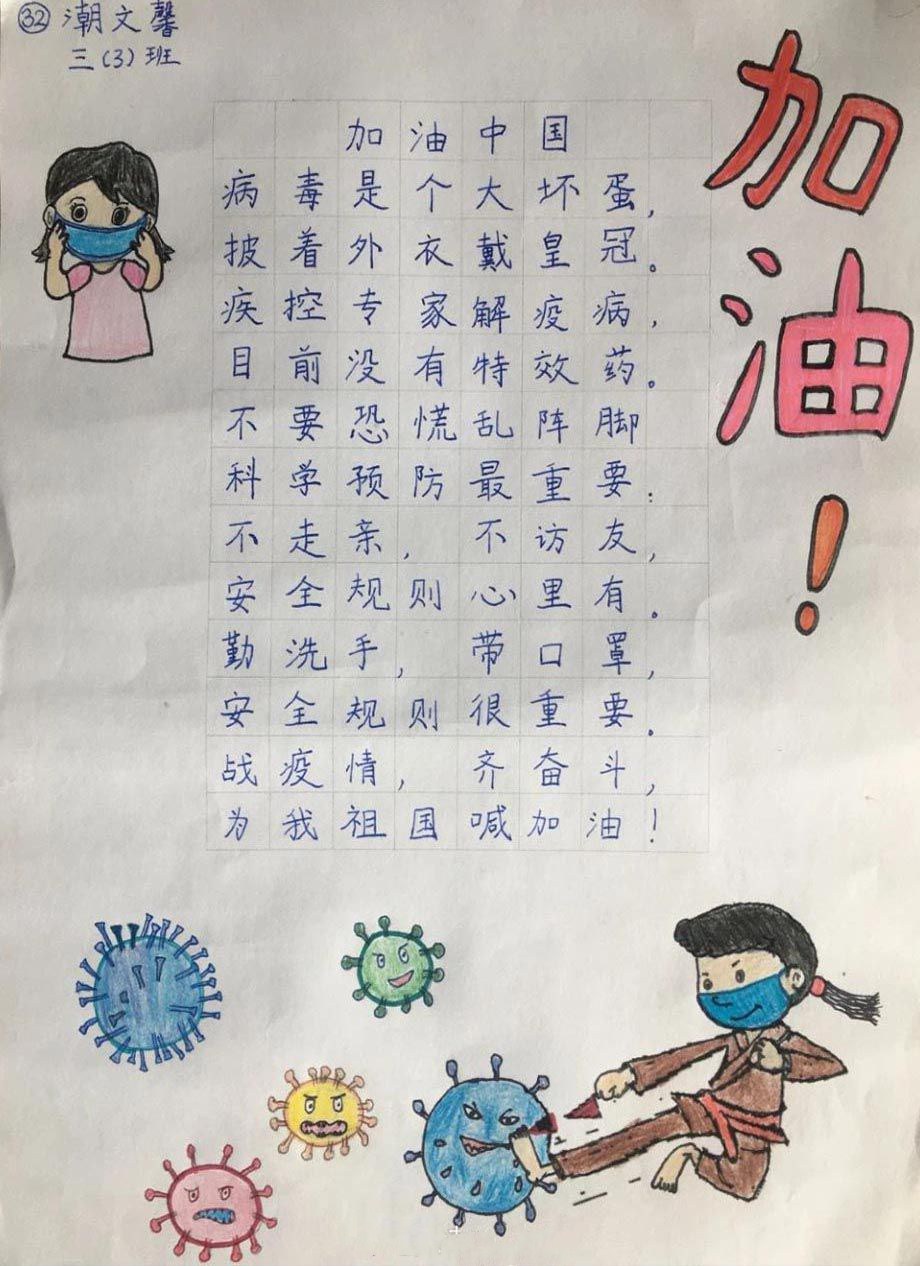 ㉜ 潮文馨
三(3)班
加油！
加油中国
病毒是个大坏蛋，
披着外衣戴皇冠。
疾控专家解疫病，
目前没有特效药。
不要恐慌乱阵脚
科学预防最重要：
不走亲，不访友，
安全规则心里有。
勤洗手，带口罩，
安全规则很重要。
战疫情，齐奋斗，
为我祖国喊加油！